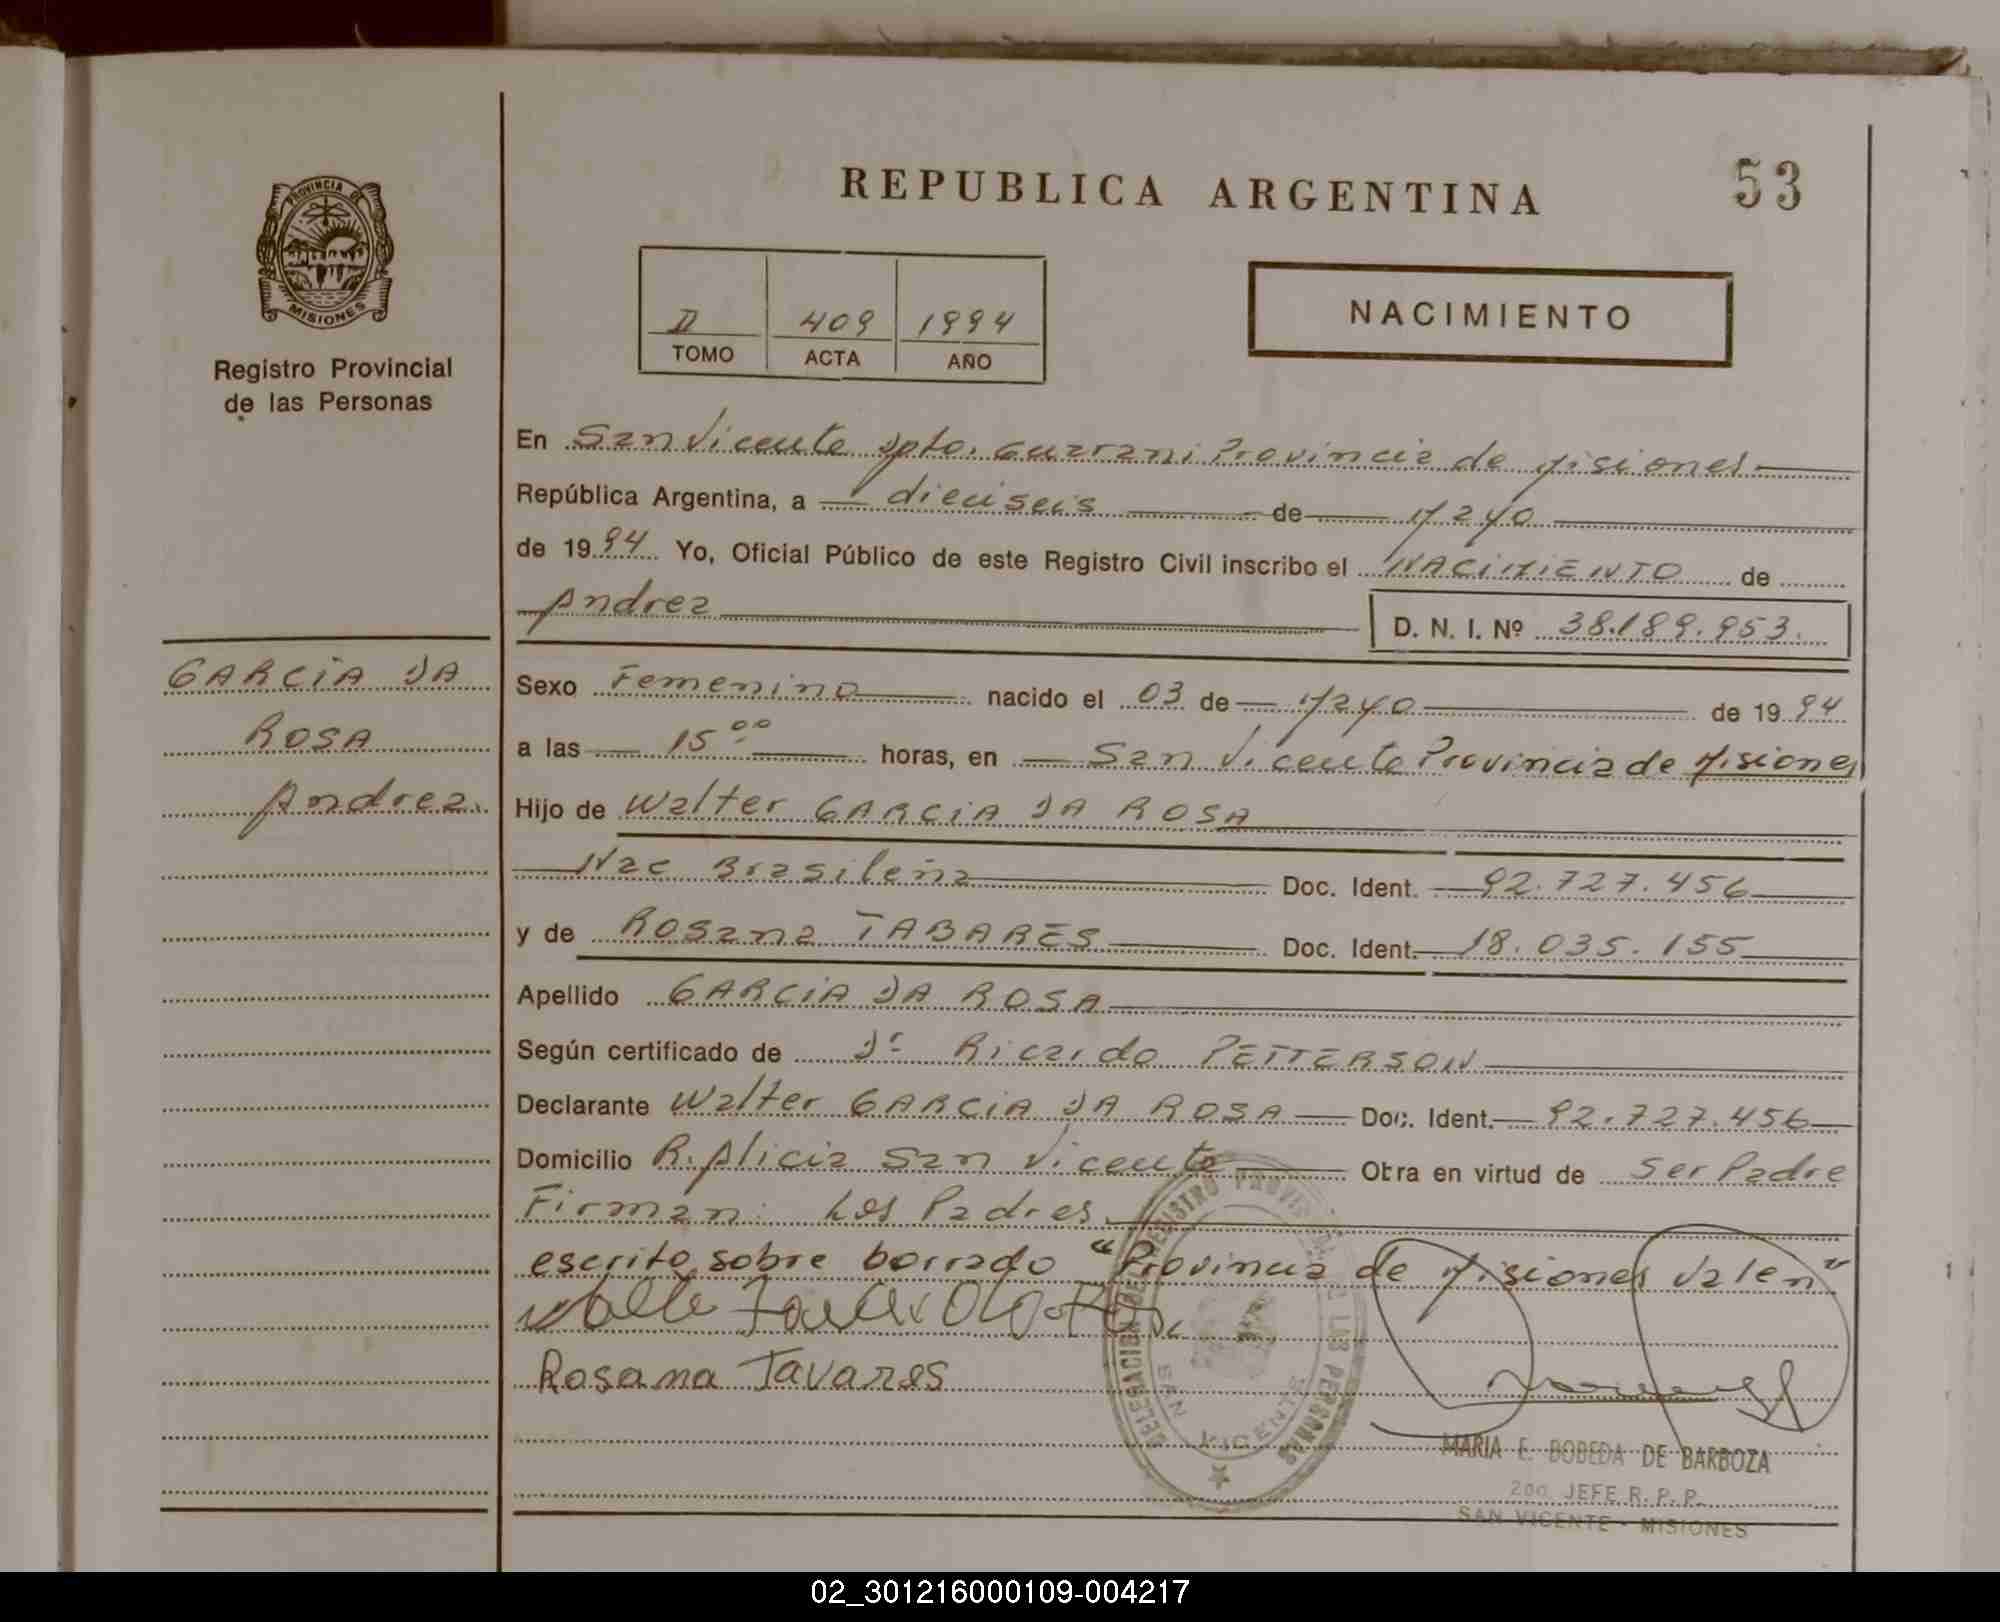 REPUBLICA ARGENTINA
53
PROVINCIA DE
MISIONES
Registro Provincial
de las Personas
D 409 1994
TOMO ACTA AÑO
NACIMIENTO
En San Vicente Dpto. Guarani Provincia de Misiones
República Argentina, a dieciseis de Mayo
de 1994 Yo, Oficial Público de este Registro Civil inscribo el NACIMIENTO de
Andrea
D. N. I. Nº 38.189.953.
GARCIA DA
ROSA
Andrea.
Sexo Femenino nacido el 03 de Mayo de 1994
a las 15 00 horas, en San Vicente Provincia de Misiones
Hijo de Walter GARCIA DA ROSA
Nac Brasileña Doc. Ident. 92.727.456
y de Rosana TABARES Doc. Ident. 18.035.155
Apellido GARCIA DA ROSA
Según certificado de Dr Ricardo PETTERSON
Declarante Walter GARCIA DA ROSA Doc. Ident. 92.727.456
Domicilio R. Alicia San Vicente Obra en virtud de Ser Padre
Firman: Los Padres
escrito sobre borrado "Provincia de Misiones Valen"
Rosana Tavares
DELEGACION DEL REGISTRO PROVINCIAL DE LAS PERSONAS
SAN VICENTE
MARIA E. BOBEDA DE BARBOZA
2do. JEFE R. P. P.
SAN VICENTE - MISIONES
02_301216000109-004217